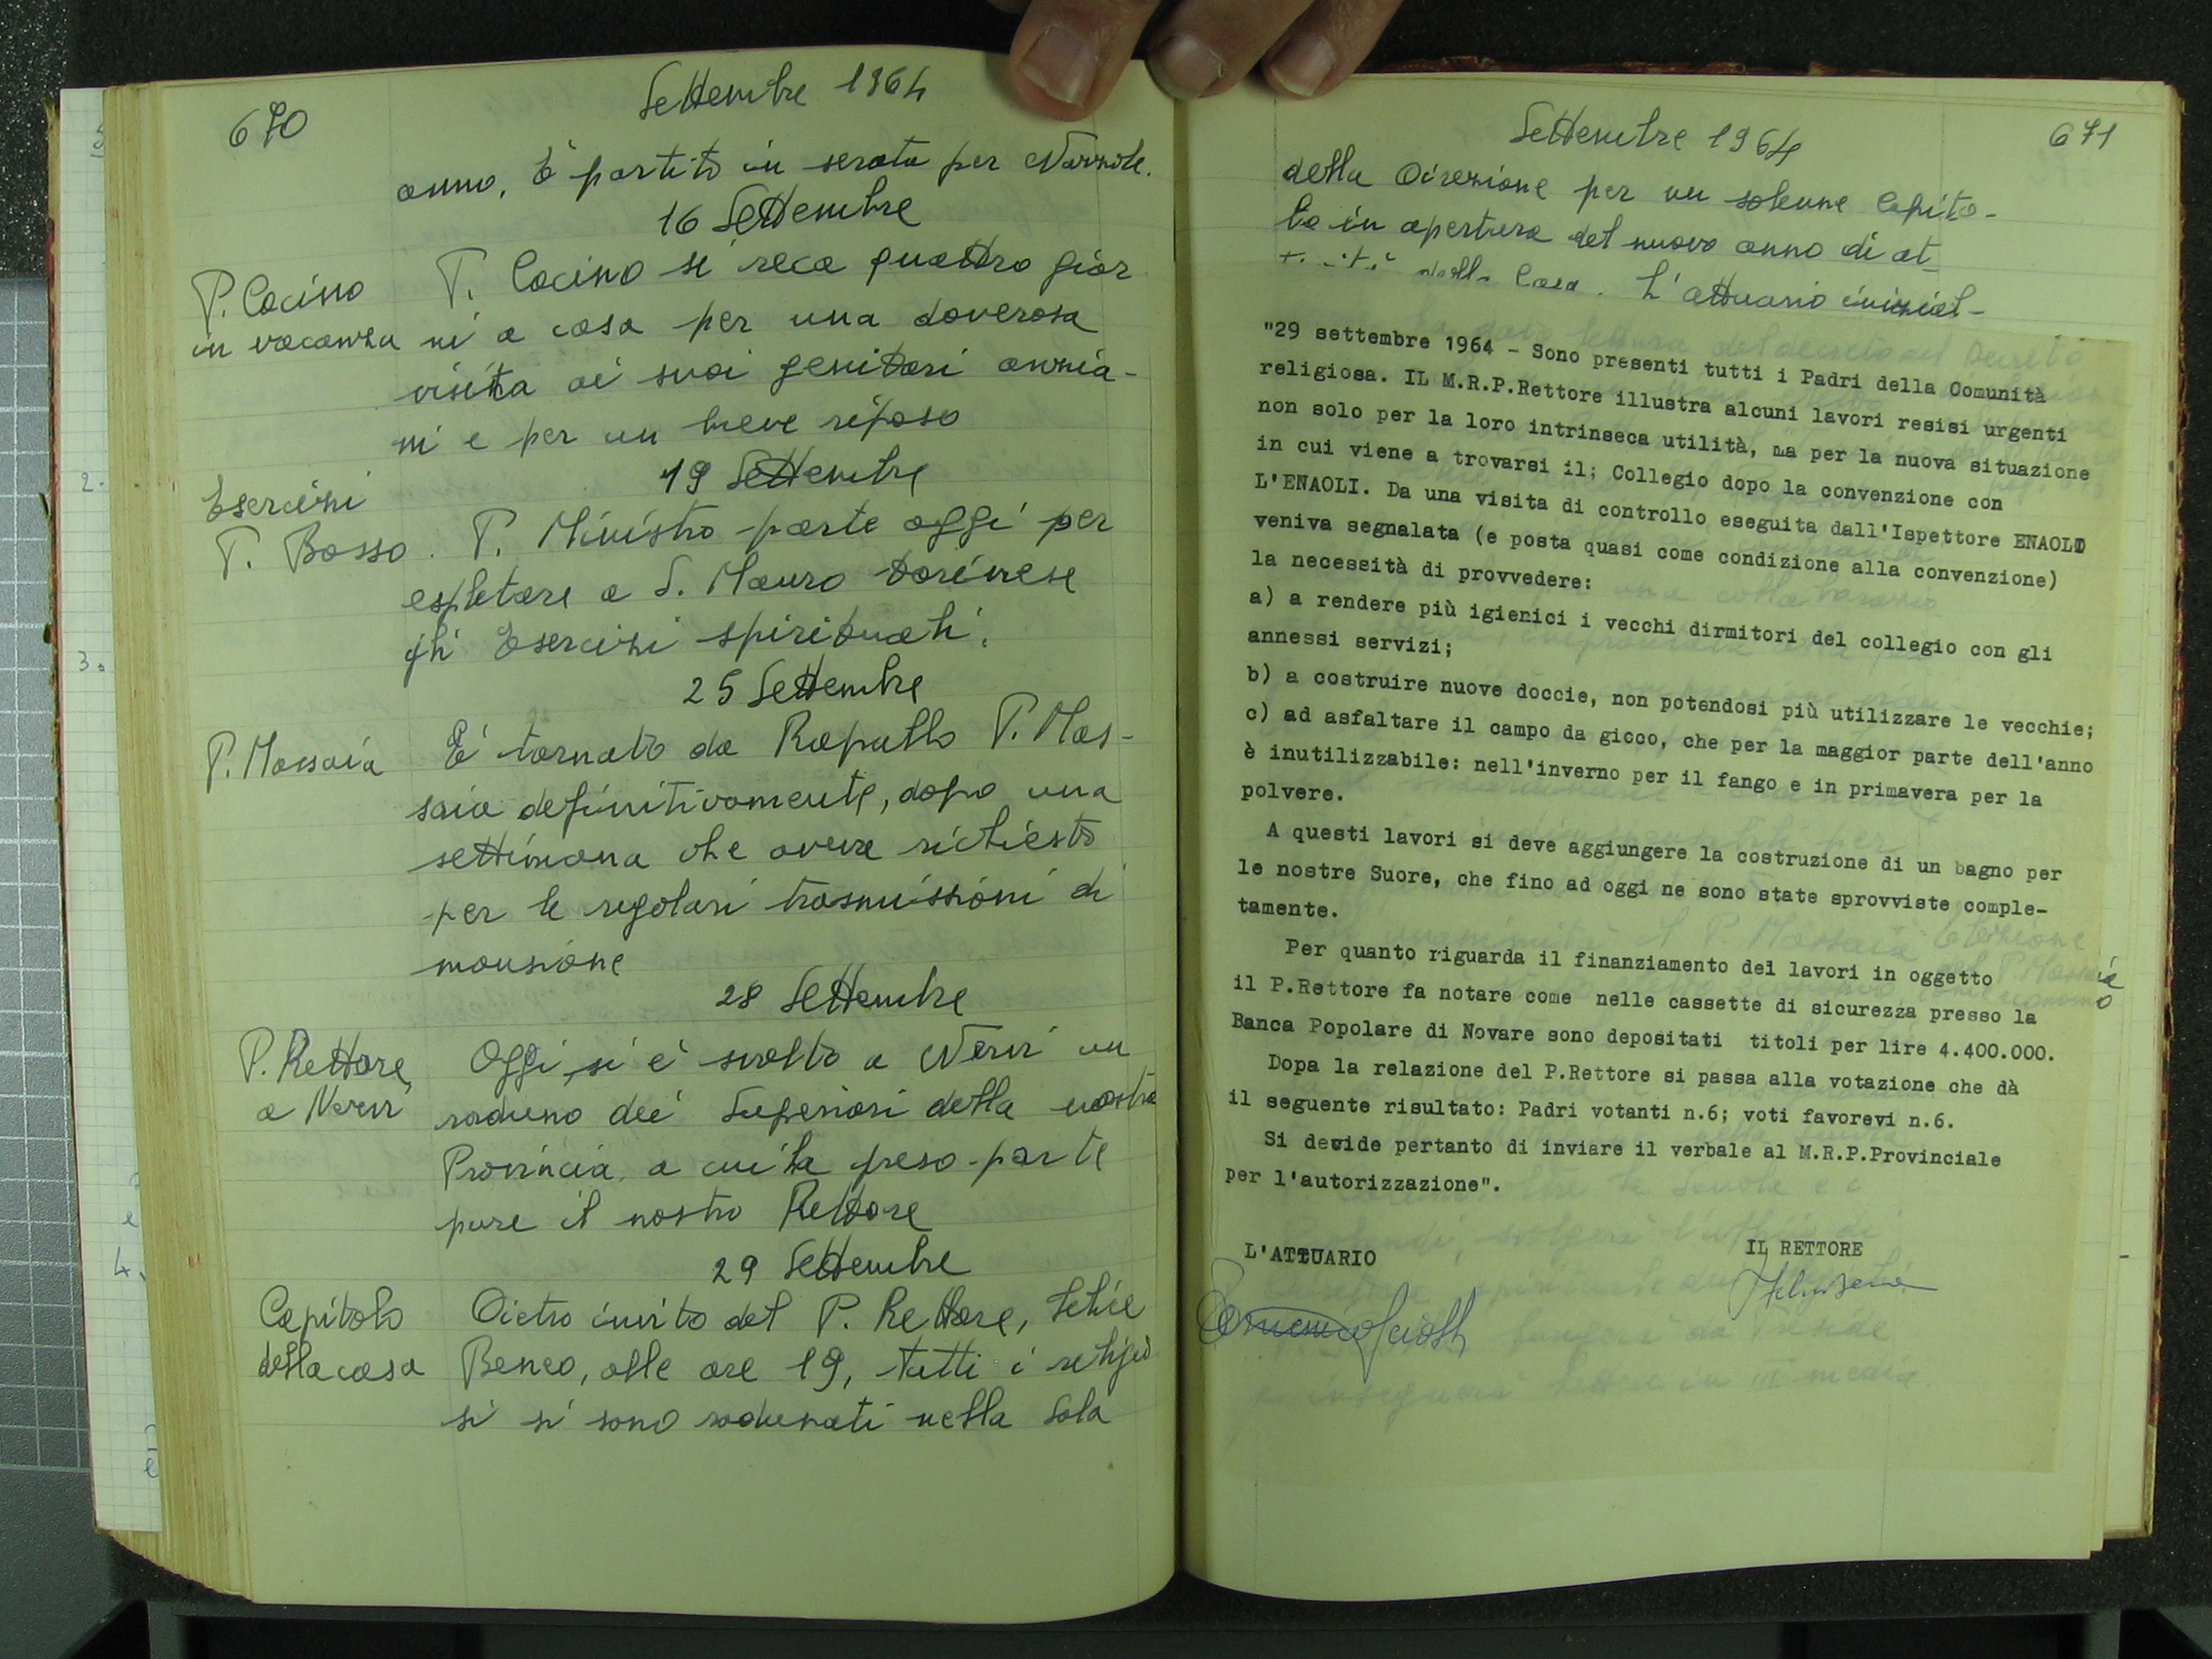 670
Settembre 1964
anno. È partito in serata per Narzole.
16 Settembre
P. Cocino
in vacanza
P. Cocino si reca quattro gior
ni a casa per una doverosa
visita ai suoi genitori anzia-
ni e per un breve riposo
19 Settembre
Esercizi
P. Bosso.
P. Ministro parte oggi per
espletare a S. Mauro torinese
gli Esercizi spirituali.
25 Settembre
P. Massaia
È tornato da Rapallo P. Mas-
saia definitivamente, dopo una
settimana che aveva richiesto
per le regolari trasmissioni di
mansione
28 Settembre
P. Rettore
a Nervi
Oggi si è svolto a Nervi un
raduno dei Superiori della nostra
Provincia, a cui ha preso parte
pure il nostro Rettore
29 Settembre
Capitolo
della casa
Dietro invito del P. Rettore, Felice
Beneo, alle ore 19, tutti i religio
si si sono radunati nella Sala
Settembre 1964
671
della Direzione per un solenne Capito-
lo in apertura del nuovo anno di at-
della Casa. L'attuario inizial-
"29 settembre 1964 - Sono presenti tutti i Padri della Comunità
religiosa. IL M.R.P.Rettore illustra alcuni lavori resisi urgenti
non solo per la loro intrinseca utilità, ma per la nuova situazione
in cui viene a trovarsi il; Collegio dopo la convenzione con
L'ENAOLI. Da una visita di controllo eseguita dall'Ispettore ENAOLI
veniva segnalata (e posta quasi come condizione alla convenzione)
la necessità di provvedere:
a) a rendere più igienici i vecchi dirmitori del collegio con gli
annessi servizi;
b) a costruire nuove doccie, non potendosi più utilizzare le vecchie;
c) ad asfaltare il campo da gicco, che per la maggior parte dell'anno
è inutilizzabile: nell'inverno per il fango e in primavera per la
polvere.
A questi lavori si deve aggiungere la costruzione di un bagno per
le nostre Suore, che fino ad oggi ne sono state sprovviste comple-
tamente.
Per quanto riguarda il finanziamento dei lavori in oggetto
il P.Rettore fa notare come nelle cassette di sicurezza presso la
Banca Popolare di Novare sono depositati titoli per lire 4.400.000.
Dopa la relazione del P.Rettore si passa alla votazione che dà
il seguente risultato: Padri votanti n.6; voti favorevi n.6.
Si decide pertanto di inviare il verbale al M.R.P.Provinciale
per l'autorizzazione".
L'ATTUARIO
IL RETTORE